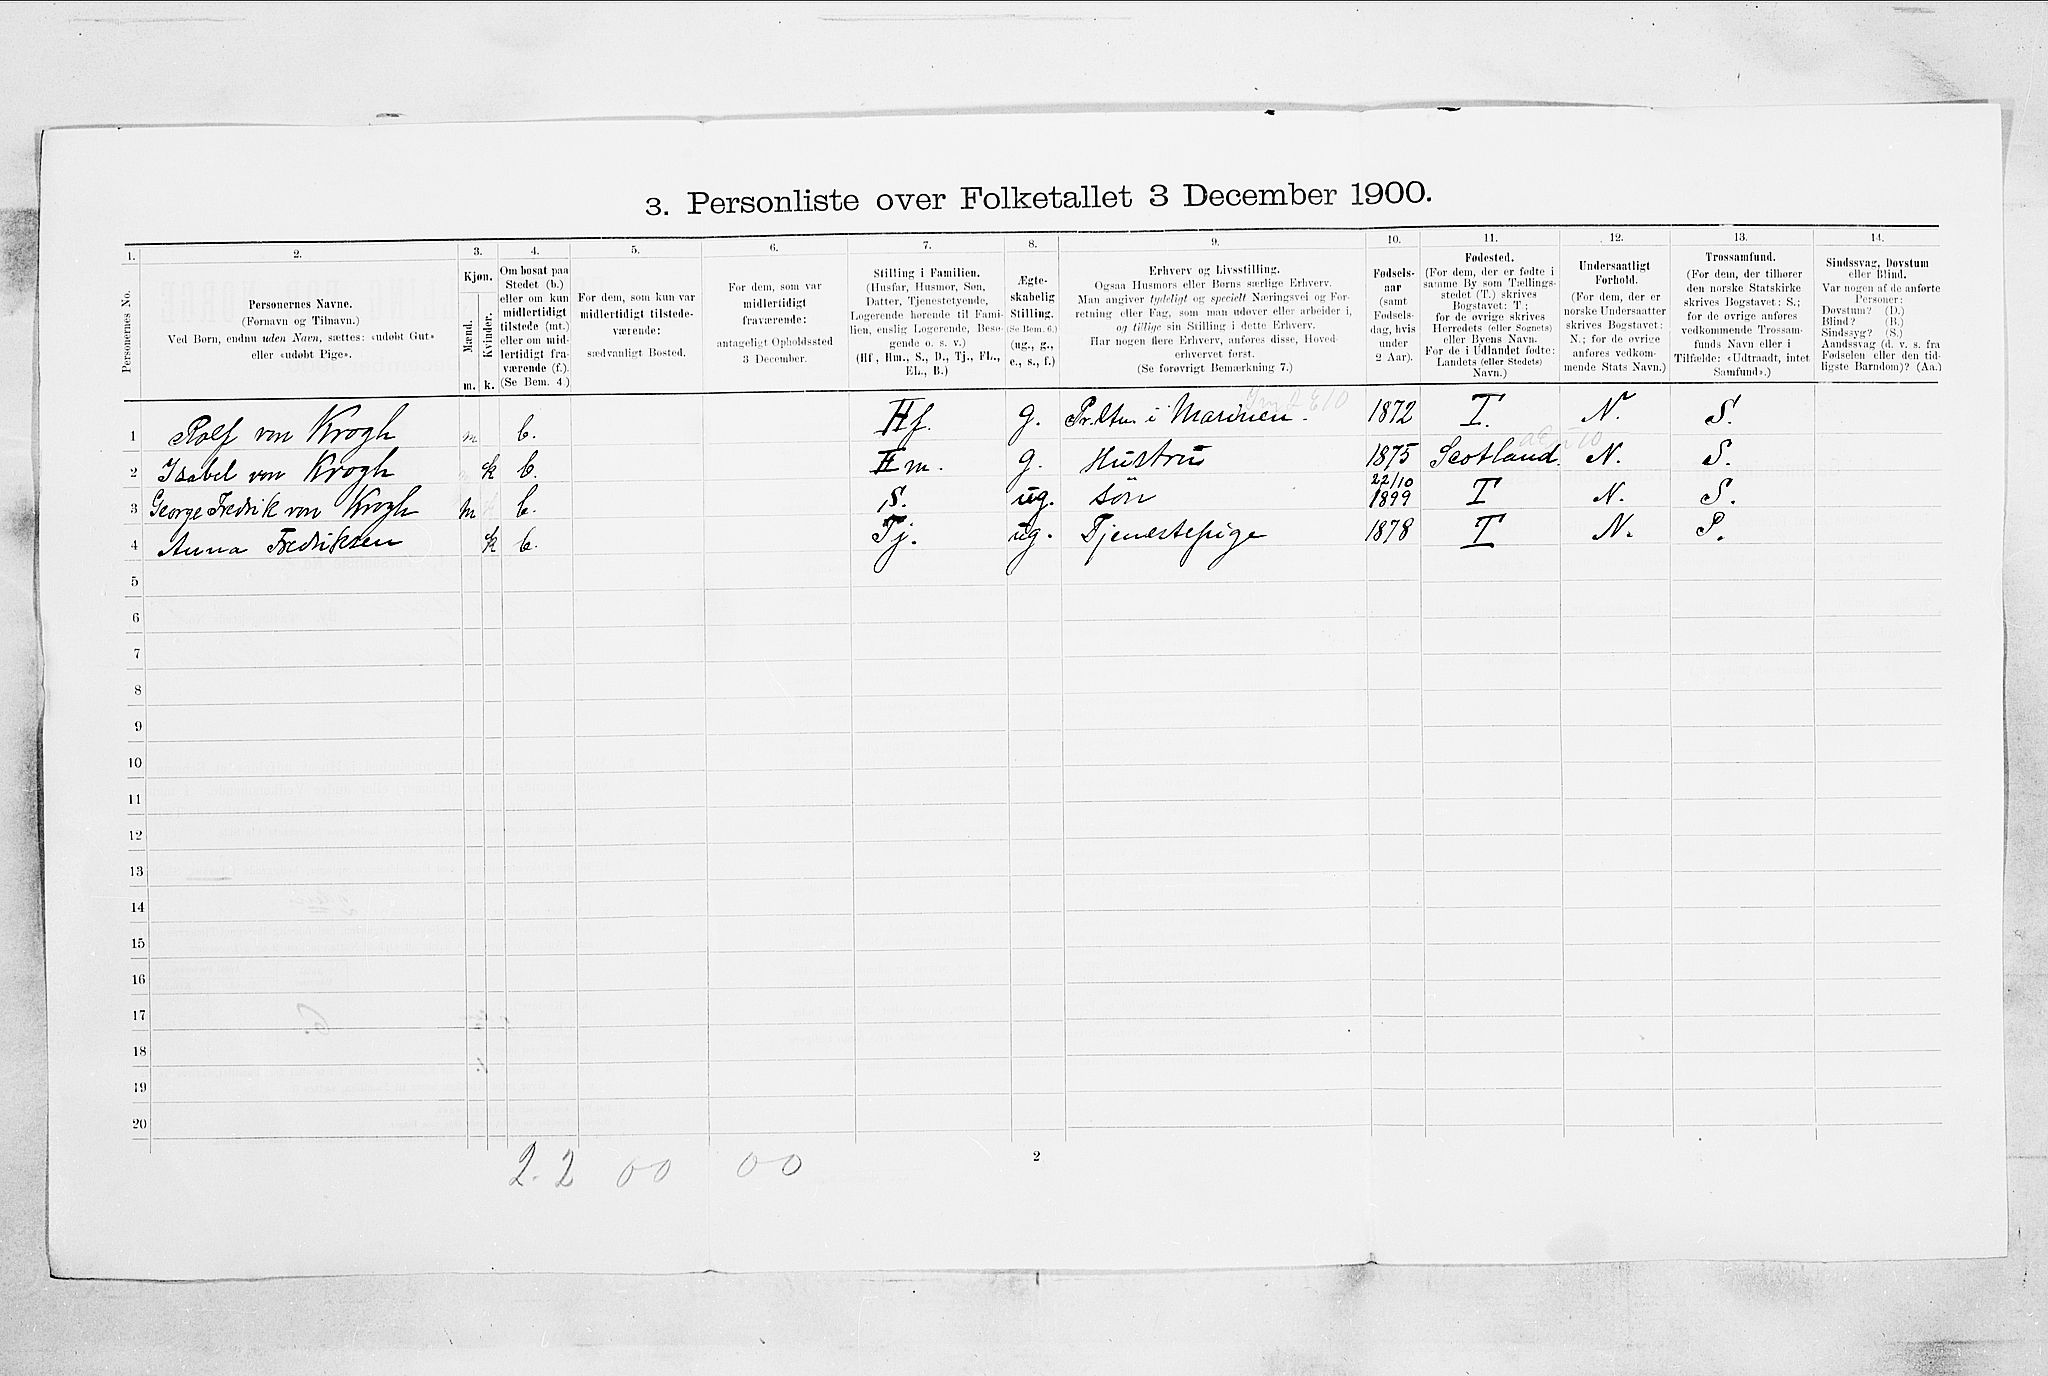 3. Personliste over Folketallet 3 December 1900.
1. 2. 3. 4. 5. 6. 7. 8. 9. 10. 11. 12. 13. 14.
Personernes No.
Personernes Navne.
(Fornavn og Tilnavn.)
Ved Børn, endnu uden Navn, sættes: «udøbt Gut»
eller «udøbt Pige».
Kjøn.
Mænd.
Kvinder.
m. k.
Om bosat paa
Stedet (b.)
eller om kun
midlertidigt
tilstede (mt.)
eller om mid-
lertidigt fra-
værende (f.).
(Se Bem. 4.)
For dem, som kun var
midlertidigt tilstede-
værende:
sædvanligt Bosted.
For dem, som var
midlertidigt
fraværende:
antageligt Opholdssted
3 December.
Stilling i Familien.
(Husfar, Husmor, Søn,
Datter, Tjenestetyende,
Logerende hørende til Fami-
lien, enslig Logerende, Besø-
gende o. s. v.)
(Hf., Hm., S., D., Tj., FL.,
EL., B.)
Ægte-
skabelig
Stilling.
(Se Bem. 6.)
(ug., g.,
e., s., f.)
Erhverv og Livsstilling.
Ogsaa Husmors eller Børns særlige Erhverv.
Man angiver tydeligt og specielt Næringsvei og For-
retning eller Fag, som man udøver eller arbeider i,
og tillige sin Stilling i dette Erhverv.
Har nogen flere Erhverv, anføres disse, Hoved-
erhvervet først.
(Se forøvrigt Bemærkning 7.)
Fødsels-
aar
(samt
Fødsels-
dag, hvis
under
2 Aar).
Fødested.
(For dem, der er fødte i
samme By som Tællings-
stedet (T.) skrives
Bogstavet: T.;
for de øvrige skrives
Herredets (eller Sognets)
eller Byens Navn.
For de i Udlandet fødte:
Landets (eller Stedets)
Navn.)
Undersaatligt
Forhold.
(For dem, der er
norske Undersaatter
skrives Bogstavet:
N.; for de øvrige
anføres vedkom-
mende Stats Navn.)
Trossamfund.
(For dem, der tilhører
den norske Statskirke
skrives Bogstavet: S.;
for de øvrige anføres
vedkommende Trossam-
funds Navn eller i
Tilfælde: «Udtraadt, intet
Samfund».)
Sindssvag, Døvstum
eller Blind.
Var nogen af de anførte
Personer:
Døvstum? (D.)
Blind? (B.)
Sindssyg? (S.)
Aandssvag (d. v. s. fra
Fødselen eller den tid-
ligste Barndom)? (Aa.)
1 Rolf von Krogh m b. Hf. g. i Marinen. 1872 T. N. S.
2 Isabel von Krogh k b. Hm. g. Hustru 1875 Scotland. N. S.
3 George Fredrik von Krogh m b. S. ug. Søn 22/10 1899 T N. S.
4 Anna Fredriksen k b. Tj. ug. Tjenestepige 1878 T N. P.
5
6
7
8
9
10
11
12
13
14
15
16
17
18
19
20
2. 2 0 0 0 0
2